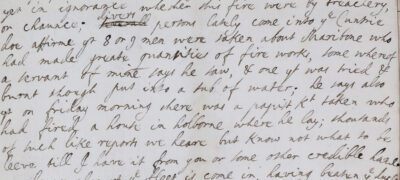 yet in ignorance whether this fire were by treachery,
or chance; divers persons lately come into ye Cuntrie
doe affirme yt 8 or 9 men were taken about who
had made great quantities of fire work, some whereof
a servant of mine says he saw, & one yt was tried &
burnt though put into a tub of water; he says also
yt on friday morning there was a taken who
had fired a house in holborne where he lay; thousands
of such like reports we heare but know not what to be
leeve till I have it from you or some other credible
is come in, having beaten ye